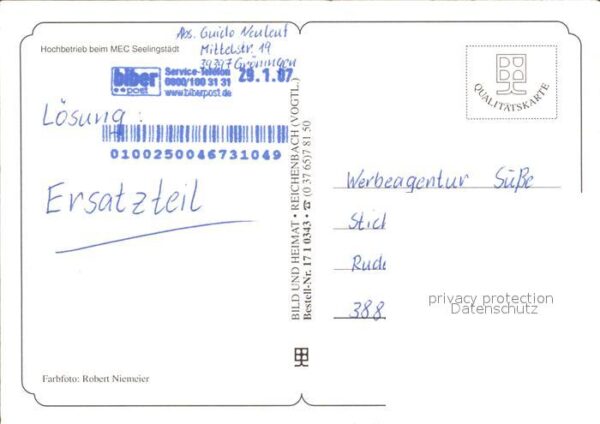 Hochbetrieb beim MEC Seelingstädt
Abs. Guido Neuleuf
Mittelstr. 19
39397 Gröningen
biber post
Service-Telefon
0800/100 31 31
www.biberpost.de
29.1.07
Lösung:
0100250046731049
Ersatzteil
Farbfoto: Robert Niemeier
BILD UND HEIMAT • REICHENBACH (VOGTL.)
Bestell-Nr. 17 1 0343 • ☎ (0 37 65) 7 81 50
QUALITÄTSKARTE
Werbeagentur Süße
Stich
Rude
388
privacy protection
Datenschutz